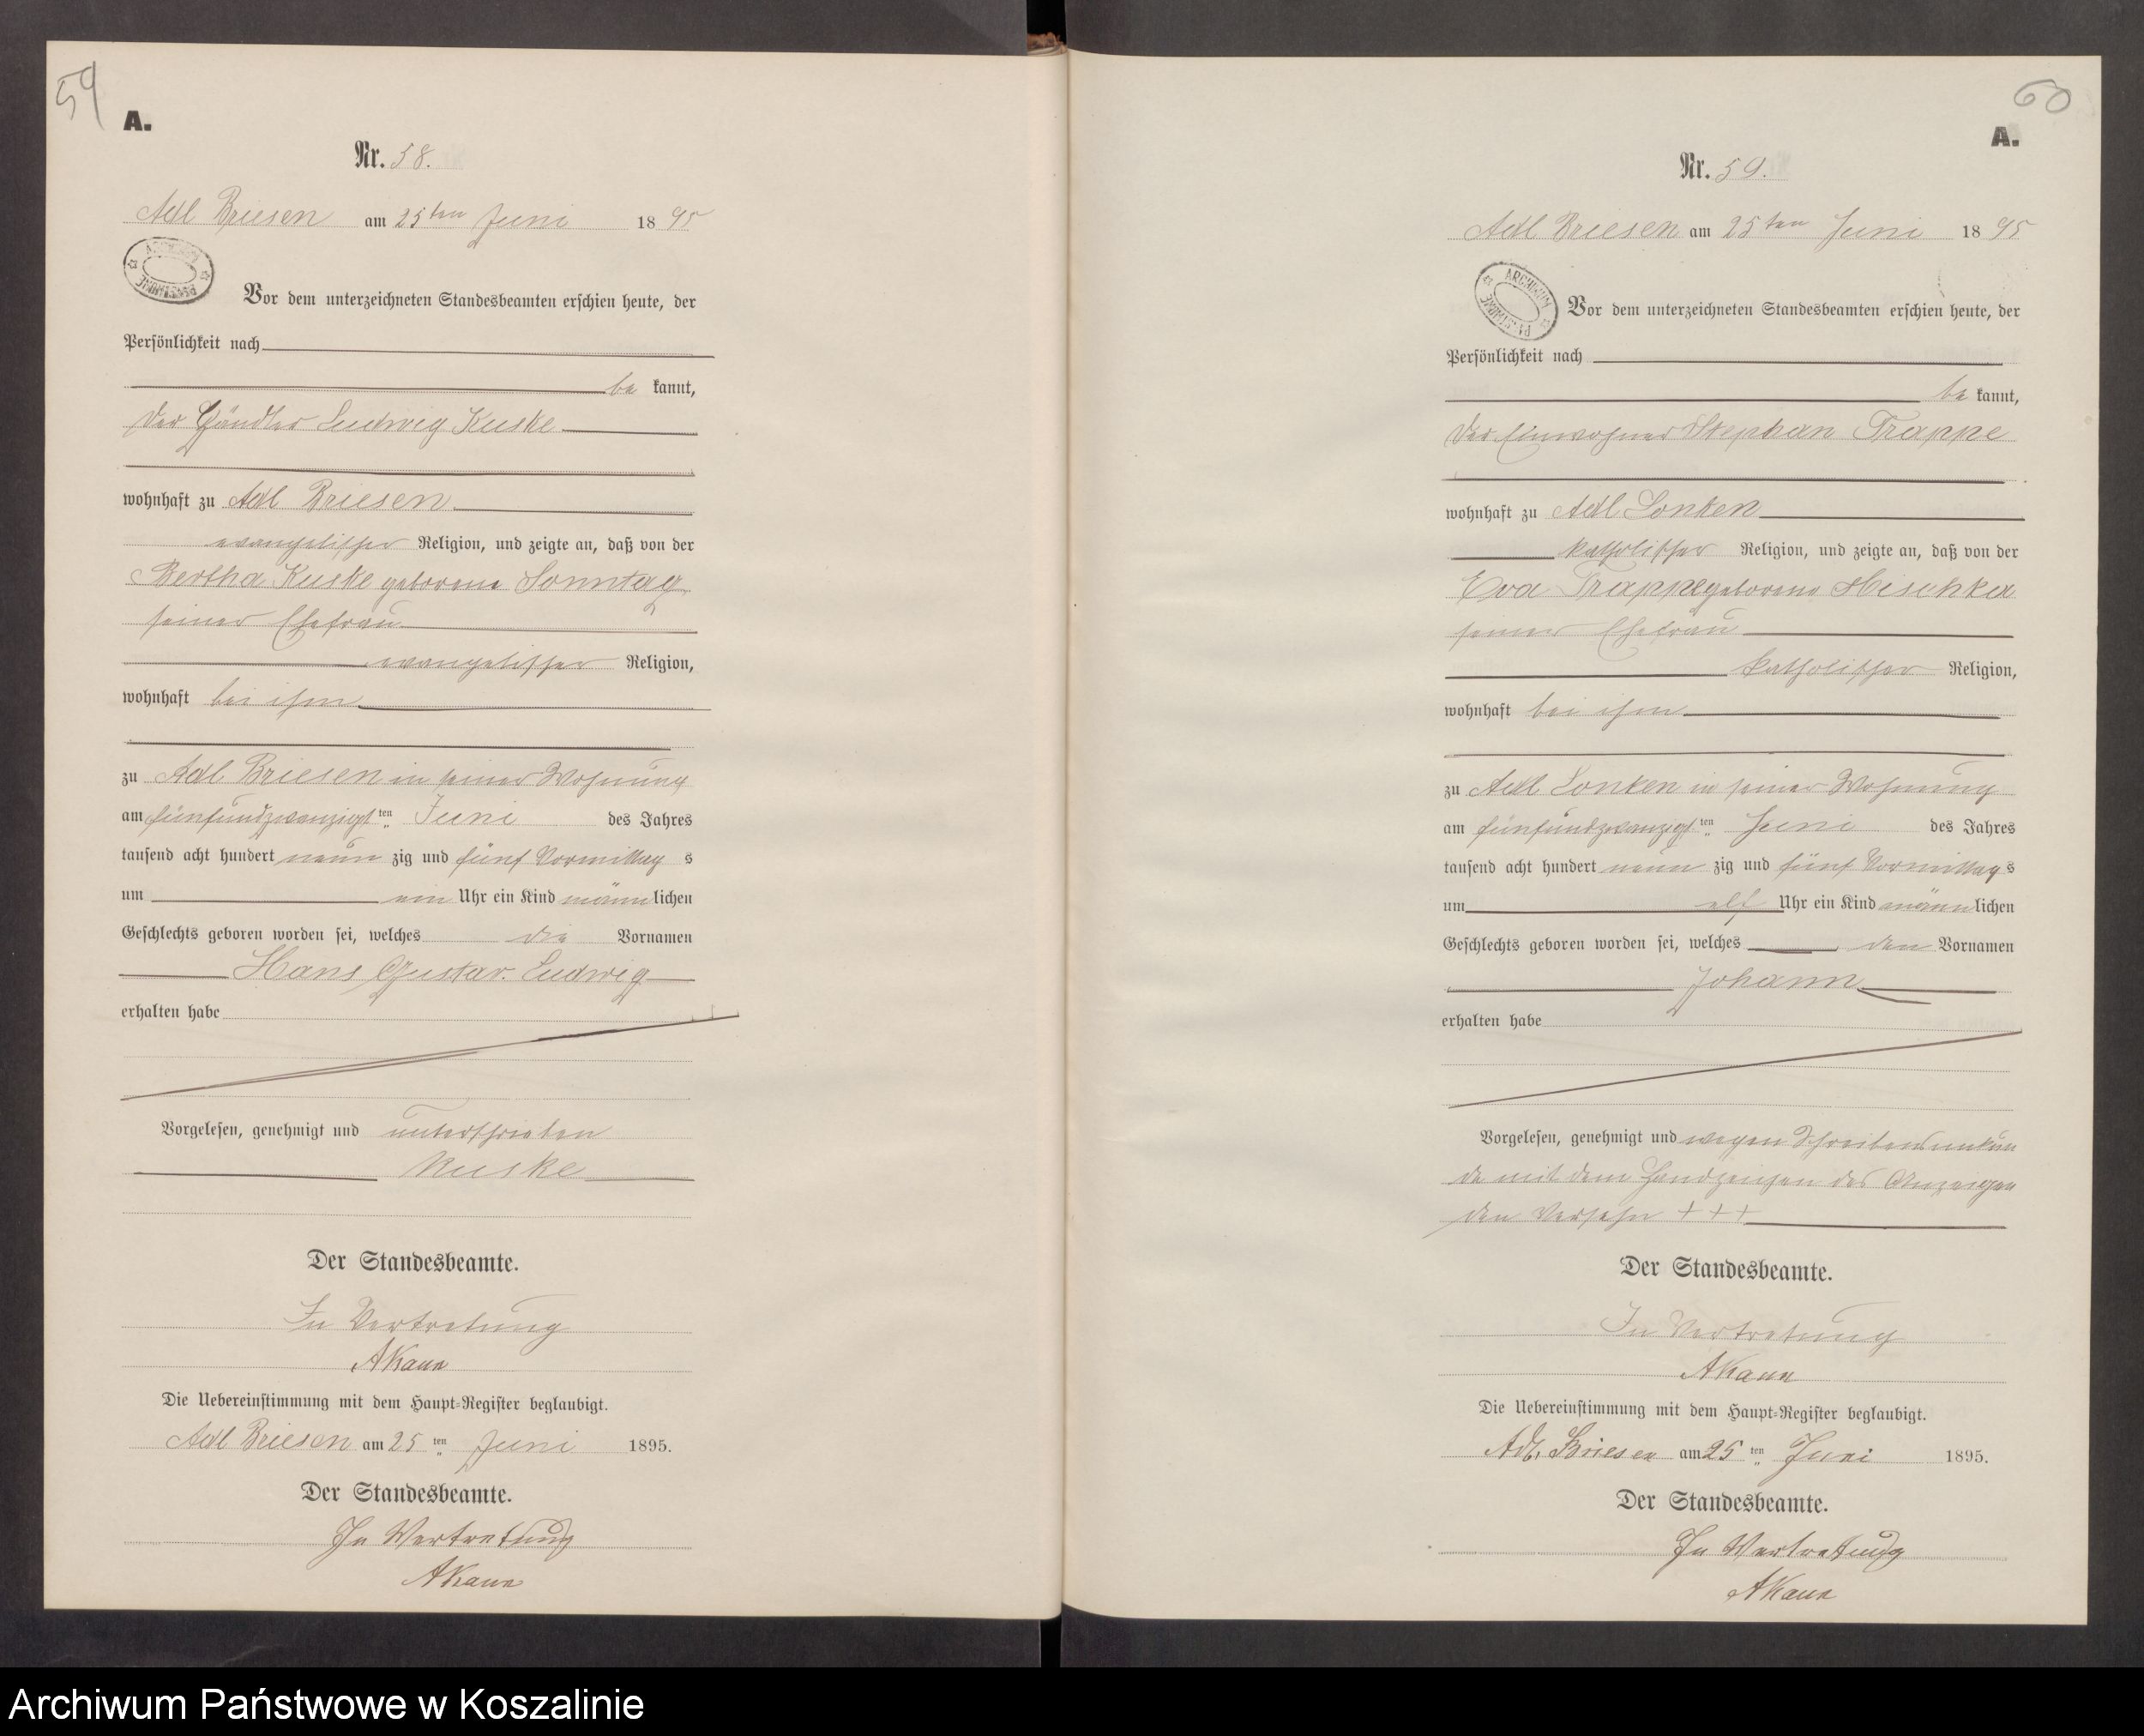 59
A.
Nr. 58.
Adl Briesen am 25ten Juni 1895
ARCHIWUM PAŃSTWOWE
Vor dem unterzeichneten Standesbeamten erschien heute, der
Persönlichkeit nach
be kannt,
der Händler Ludwig Kuske
wohnhaft zu Adl Briesen
evangelischer Religion, und zeigte an, daß von der
Bertha Kuske geborene Sonntag
seiner Ehefrau
evangelischer Religion,
wohnhaft bei ihm
zu Adl Briesen in seiner Wohnung
am fünfundzwanzigsten Juni des Jahres
tausend acht hundert neun zig und fünf Vormittag s
um ein Uhr ein Kind männlichen
Geschlechts geboren worden sei, welches die Vornamen
Hans Gustav Ludwig
erhalten habe
Vorgelesen, genehmigt und unterschrieben
Kuske
Der Standesbeamte.
In Vertretung
A
Die Uebereinstimmung mit dem Haupt-Register beglaubigt.
Adl Briesen am 25 ten Juni 1895.
Der Standesbeamte.
In Vertretung
A
60
A.
Nr. 59.
Adl Briesen am 25ten Juni 1895
ARCHIWUM PAŃSTWOWE
Vor dem unterzeichneten Standesbeamten erschien heute, der
Persönlichkeit nach
be kannt,
der Einwohner Stephan Trappe
wohnhaft zu Adl Lonken
katholischer Religion, und zeigte an, daß von der
Eva Trappe geborene Hischka
seiner Ehefrau
katholischer Religion,
wohnhaft bei ihm
zu Adl Lonken in seiner Wohnung
am fünfundzwanzigsten Juni des Jahres
tausend acht hundert neun zig und fünf Vormittag s
um elf Uhr ein Kind männlichen
Geschlechts geboren worden sei, welches den Vornamen
Johann
erhalten habe
Vorgelesen, genehmigt und wegen Schreibensunkun
de mit dem Handzeichen des Anzeigen
den versehn +++
Der Standesbeamte.
In Vertretung
A
Die Uebereinstimmung mit dem Haupt-Register beglaubigt.
Adl. Briesen am 25 ten Juni 1895.
Der Standesbeamte.
In Vertretung
A
Archiwum Państwowe w Koszalinie